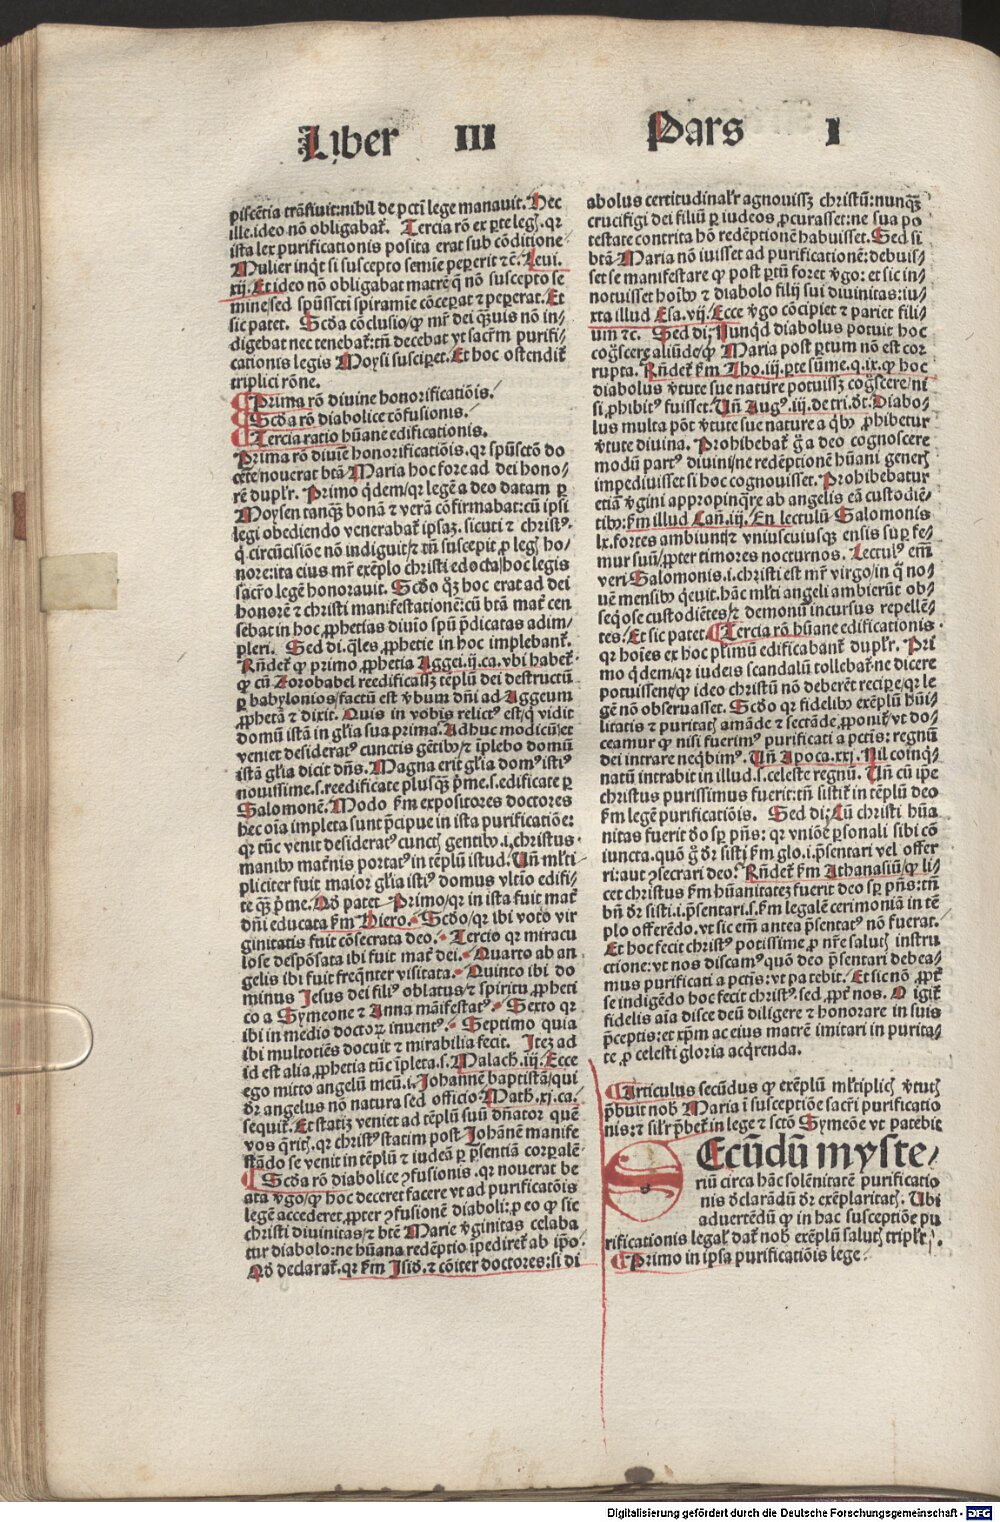 Liber III Pars I
piscẽtia trãsiuit: nihil de pctĩ lege manauit. Nec
ille. ideo nõ obligabat̃. Tercia rõ ex ꝑte legꝭ. qꝛ
ista lex purificationis posita erat sub cõditione
Mulier inqͥt si suscepto semĩe peperit ⁊ cẽ. Leui.
xij. Et ideo nõ obligabat matrẽ q̃ nõ suscepto se
mine/sed spũssctĩ spiramĩe cõceꝑat ⁊ peperat. Et
sic patet. Scḋa cõclusio/ꝙ mr̃ dei qͣuis nõ in/
digebat nec tenebat̃: tñ decebat vt sacr̃m purifi/
cationis legis Moysi susciꝑet. Et hoc ostendit̃
triplici rõne.
Prima rõ diuine honorificatiõis.
Scḋa rõ diabolice cõfusionis.
Tercia ratio hũane edificationis.
Prima rõ diuiẽ honorificatiõis. qꝛ spũsctõ do
cẽte/nouerat btã Maria hoc fore ad dei hono/
rẽ duplr̃. Primo qͥdem/qꝛ legẽ a deo datam ꝑ
Moysen tanqͣȝ bonã ⁊ verã cõfirmabat: cũ ipsi
legi obediendo venerabat̃ ipsaȝ. sicuti ⁊ christꝰ.
qͥ circũcisiõe nõ indiguit/⁊ tñ suscepit ꝓ legꝭ ho/
nore: ita eius mr̃ exẽplo christi edocta/hoc legis
sacr̃o legẽ honorauit. Scḋo qͥȝ hoc erat ad dei
honorẽ ⁊ christi manifestationẽ: cũ btã mat̃ cen
sebat in hoc ꝓphetias diuĩo spũ p̃dicatas adim/
pleri. Sed di. qͥles ꝓphetie in hoc implebant̃.
Rñdet̃ ꝙ primo ꝓphetia Aggei. ij. ca. vbi habet̃
ꝙ cũ Zorobabel reedificassȝ tẽplũ dei destructũ
ꝑ babylonios/factũ est v̓bum dñi ad Aggeum
ꝓphetã ⁊ dixit. Quis in vobis relictꝰ est/qͥ vidit
domũ istã in gl̃ia sua prima. Adhuc modicũ/et
veniet desideratꝰ cunctis gẽtibꝰ/⁊ ĩplebo domũ
istã gl̃ia dicit dñs. Magna erit gl̃ia domꝰ istiꝰ
nouissime. s. reedificate plusqͣȝ p̃me. s. edificate ꝑ
Salomonẽ. Modo ẜm expositores doctores
hec oĩa impleta sunt p̃cipue in ista purificatiõe:
qꝛ tũc venit desideratꝰ cunctꝭ gentibꝰ. i. christus
manibꝰ mat̃nis portatꝰ in tẽplũ istud. Vñ ml̃ti
pliciter fuit maior gl̃ia istiꝰ domus vltĩo edifi/
te qͣȝ p̃me. Qḋ patet Primo/qꝛ in ista fuit mat̃
dñi educata ẜm Hiero. Scḋo/qꝛ ibi voto vir
ginitatis fuit cõsecrata deo. Tercio qꝛ miracu
lose despõsata ibi fuit mat̃ dei. Quarto ab an
gelis ibi fuit freqñter visitata. Quinto ibi do
minus Jesus dei filiꝰ oblatus/⁊ spiritu ꝓpheti
co a Symeone ⁊ Anna mãifestatꝰ. Sexto qꝛ
ibi in medio doctoꝝ inuentꝰ. Septimo quia
ibi multotiẽs docuit ⁊ mirabilia fecit. Iteȝ ad
id est alia ꝓphetia tũc ĩpleta. s. Malach. iij. Ecce
ego mitto angelũ meũ. i. Johannẽ baptistã/qui
dr̃ angelus nõ natura sed officio. Math. xj. ca.
sequit̃. Et statiȝ veniet ad tẽplũ suũ dñator quẽ
vos q̃ritꝭ. qꝛ christꝰ statim post Johãnẽ manife
stãdo se venit in tẽplũ ⁊ iudeã ꝑ p̃sentiã corꝑalẽ
Scḋa rõ diabolice ꝯfusionis. qꝛ nouerat be
ata v̓go/ꝙ hoc deceret facere vt ad purificatõis
legẽ accederet ꝓpter ꝯfusionẽ diaboli: ꝓ eo ꝙ sic
christi diuinitas/⁊ btẽ Marie v̓ginitas celaba
tur diabolo: ne hũana redẽptio ĩpediret̃ ab ip̃o.
Qḋ declarat̃. qꝛ ẜm Isid. ⁊ cõiter doctores: si di
abolus certitudinalr̃ agnouissȝ christũ: nunqͣȝ
crucifigi dei filiũ ꝑ iudeos ꝓcurasset: ne sua po
testate contrita hõ redẽptionẽ habuisset. Sed si
btã Maria nõ iuisset ad purificationẽ: debuis/
set se manifestare ꝙ post ꝑtũ foret v̓go: et sic in/
notuisset hoĩbꝰ ⁊ diabolo filij sui diuinitas: iu/
xta illud Esa. vij. Ecce v̓go cõcipiet ⁊ pariet fili/
um ⁊c. Sed di. Nunqͥd diabolus potuit hoc
cog̃scere aliũde/ꝙ Maria post ꝑtum nõ est cor
rupta. Rñdet̃ ẜm Tho. iij. ꝑte sũme. q. ix. ꝙ hoc
diabolus v̓tute sue nature potuissȝ cog̃scere/ni
si ꝓhibitꝰ fuisset. Vñ Augꝰ. iij. de tri. dt̃. Diabo/
lus multa põt v̓tute sue nature a qͥbꝰ ꝓhibetur
v̓tute diuina. Prohibebat̃ g̃ a deo cognoscere
modũ partꝰ diuini/ne redẽptionẽ hũani generꝭ
impediuisset si hoc cognouisset. Prohibebatur
etiã v̓gini appropinqͣre ab angelis eã custodiẽ/
tibꝰ: ẜm illud Cañ. iij. En lectulũ Salomonis
lx. fortes ambiunt/⁊ vniuscuiusqȝ ensis suꝑ fe/
mur suũ/ꝓpter timores nocturnos. Lectulꝰ em̃
veri Salomonis. i. christi est mr̃ virgo/in qͣ no/
uẽ mensibꝰ qͥeuit. hãc ml̃ti angeli ambierũt ob/
seqͥose custodiẽtes/⁊ demonũ incursus repellẽ/
tes. Et sic patet. Tercia rõ hũane edificationis
qꝛ hoĩes ex hoc pl̃imũ edificabant̃ duplr̃. Pri
mo qͥdem/qꝛ iudeis scandalũ tollebat̃ ne dicere
potuissent/ꝙ ideo christũ nõ deberẽt reciꝑe/qꝛ le
gẽ nõ obseruasset. Scḋo qꝛ fidelibꝰ exẽplũ hũi/
litatis ⁊ puritatꝭ amãde ⁊ sectãde ꝓponit̃/vt do/
ceamur ꝙ nisi fuerimꝰ purificati a pctis: regnũ
dei intrare neqͥbimꝰ. Vñ Apoca. xxj. Nil coinqͥ/
natũ intrabit in illud. s. celeste regnũ. Vñ cũ ip̃e
christus purissimus fuerit: tñ sistit̃ in tẽplũ deo
ẜm legẽ purificatiõis. Sed di: Cũ christi hũa
nitas fuerit ḋo sꝑ p̃ns: qꝛ vniõe ꝑsonali sibi cõ
iuncta. quõ g̃ dr̃ sisti ẜm glo. i. p̃sentari vel offer
ri: aut ꝯsecrari deo. Rñdet̃ ẜm Athanasiũ/ꝙ li/
cet christus ẜm hũanitateȝ fuerit deo sꝑ p̃ns: tñ
bñ dr̃ sisti. i. p̃sentari. s. ẜm legalẽ cerimoniã in tẽ
plo offerẽdo. vt sic em̃ antea p̃sentatꝰ nõ fuerat.
Et hoc fecit christꝰ potissime ꝓ nr̃e salutꝭ instru
ctione: vt nos discamꝰ quõ deo p̃sentari debea/
mus purificati a pctis: vt patebit. Et sic nõ ꝓpt̃
se indigẽdo hoc fecit christꝰ. sed ꝓpt̃ nos. O igit̃
fidelis aĩa disce deũ diligere ⁊ honorare in suis
p̃ceptis: et xp̃m ac eius matrẽ imitari in purita/
te ꝓ celesti gloria acqͥrenda.
Articulus secũdus ꝙ exẽplũ ml̃tiplicꝭ v̓tutꝭ
p̃buit nobꝭ Maria ĩ susceptiõe sacr̃i purificatio
nis: ⁊ sil̃r p̃bet̃ in lege ⁊ sctõ Symeõe vt patebit
SEcũdũ myste/
riũ circa hãc solẽnitatẽ purificatio
nis ḋclarãdũ dr̃ exẽplaritatꝭ. Vbi
aduertẽdũ ꝙ in hac susceptiõe pu
rificationis legalꝭ dat̃ nobꝭ exẽplũ salutꝭ triplr̃.
Primo in ipsa purificatiõis lege
Digitalisierung gefördert durch die Deutsche Forschungsgemeinschaft - DFG